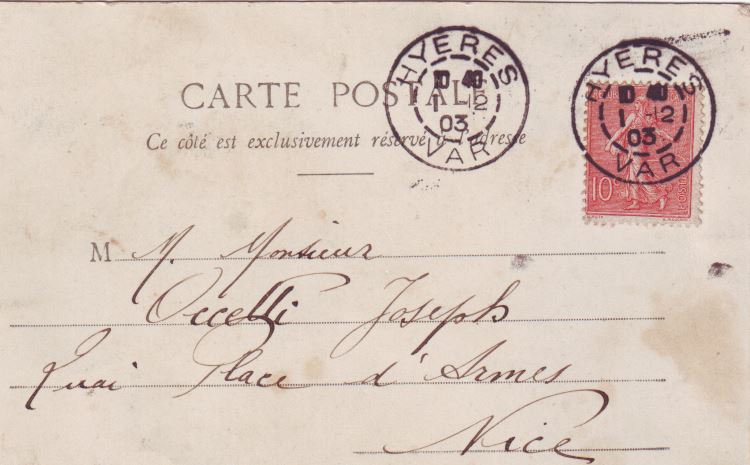 HYERES
10 40
1 -12
03
VAR
HYERES
10 40
1 -12
03
VAR
10c
POSTES
CARTE POSTALE
Ce côté est exclusivement réservé à l'adresse
M M. Monsieur
Occelli Joseph
Quai Place d'Armes
Nice